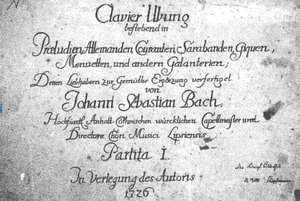 Clavier Ubung
bestehend in
Præludien, Allemanden, Couranten, Sarabanden, Giquen,
Menuetten, und andern Galanterien,
Denen Liebhabern zur Gemüths Ergoezung verfertiget
von
Johann Sebastian Bach,
Hochfürstl. Anhalt-Cöthnischen würcklichen Capellmeister und
Directore Chori Musici Lipsiensis.
Partita I.
In Verlegung des Autoris
1726